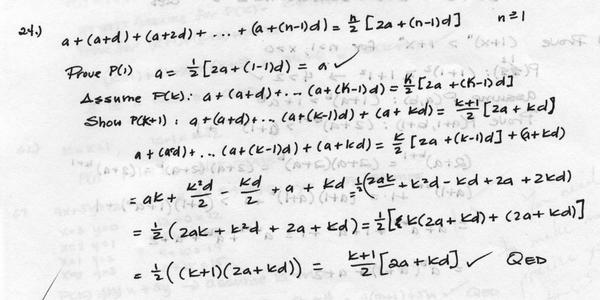 24.) a + (a+d) + (a+2d) + ... + (a+(n-1)d) = n/2 [2a + (n-1)d] n≥1
Prove P(1) a = 1/2 [2a + (1-1)d) = a ✓
Assume P(k): a + (a+d) + ... (a+(k-1)d) = k/2 [2a + (k-1)d]
Show P(k+1): a + (a+d) + ... (a+(k-1)d) + (a+kd) = k+1/2 [2a + kd]
a + (a+d) + ... (a+(k-1)d) + (a+kd) = k/2 [2a + (k-1)d] + (a+kd)
= ak + k²d/2 - kd/2 + a + kd 1/2 (2ak + k²d - kd + 2a + 2kd)
= 1/2 (2ak + k²d + 2a + kd) = 1/2 [k(2a+kd) + (2a+kd)]
= 1/2 ((k+1)(2a+kd)) = k+1/2 [2a+kd] ✓ QED